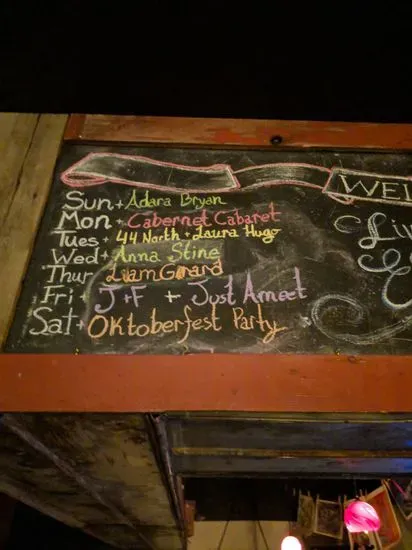 Sun + Adara Bryan
Mon + Cabernet Cabaret
Tues + 44 North + Laura Hugo
Wed + Anna Stine
Thur Liam Gerard
Fri + J + F + Just Ameet
Sat + Oktoberfest Party